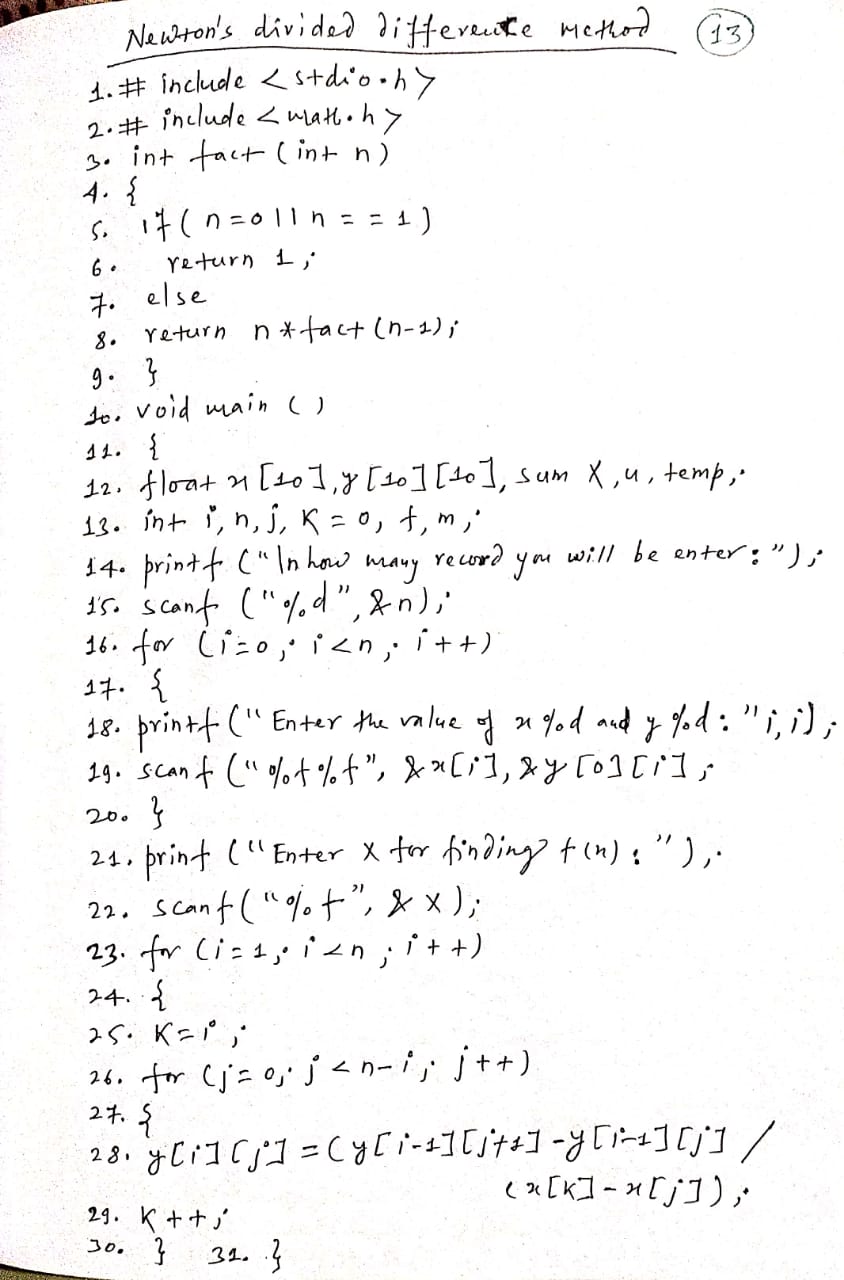 Newton's divided difference method (13)
1. # include <stdio.h>
2. # include <math.h>
3. int fact (int n)
4. {
5. if (n=0||n==1)
6. return 1;
7. else
8. return n*fact (n-1);
9. }
10. void main ()
11. {
12. float x [10], y [10] [10], sum X, u, temp;
13. int i, n, j, K = 0, f, m;
14. printf ("In how many record you will be enter: ");
15. scanf ("%d", &n);
16. for (i=0; i<n; i++)
17. {
18. printf (" Enter the value of x %d and y %d: " i, i);
19. scanf ("%f%f", &x[i], &y [0] [i];
20. }
21. print ("Enter X for finding f(n): ");
22. scanf ("%f", & x);
23. for (i=1; i<n; i++)
24. {
25. K=i;
26. for (j=0; j<n-i; j++)
27. {
28. y[i] [j] = (y[i-1][j+1] -y[i-1][j] /
(x[K] - x[j]);
29. K++;
30. } 31. }